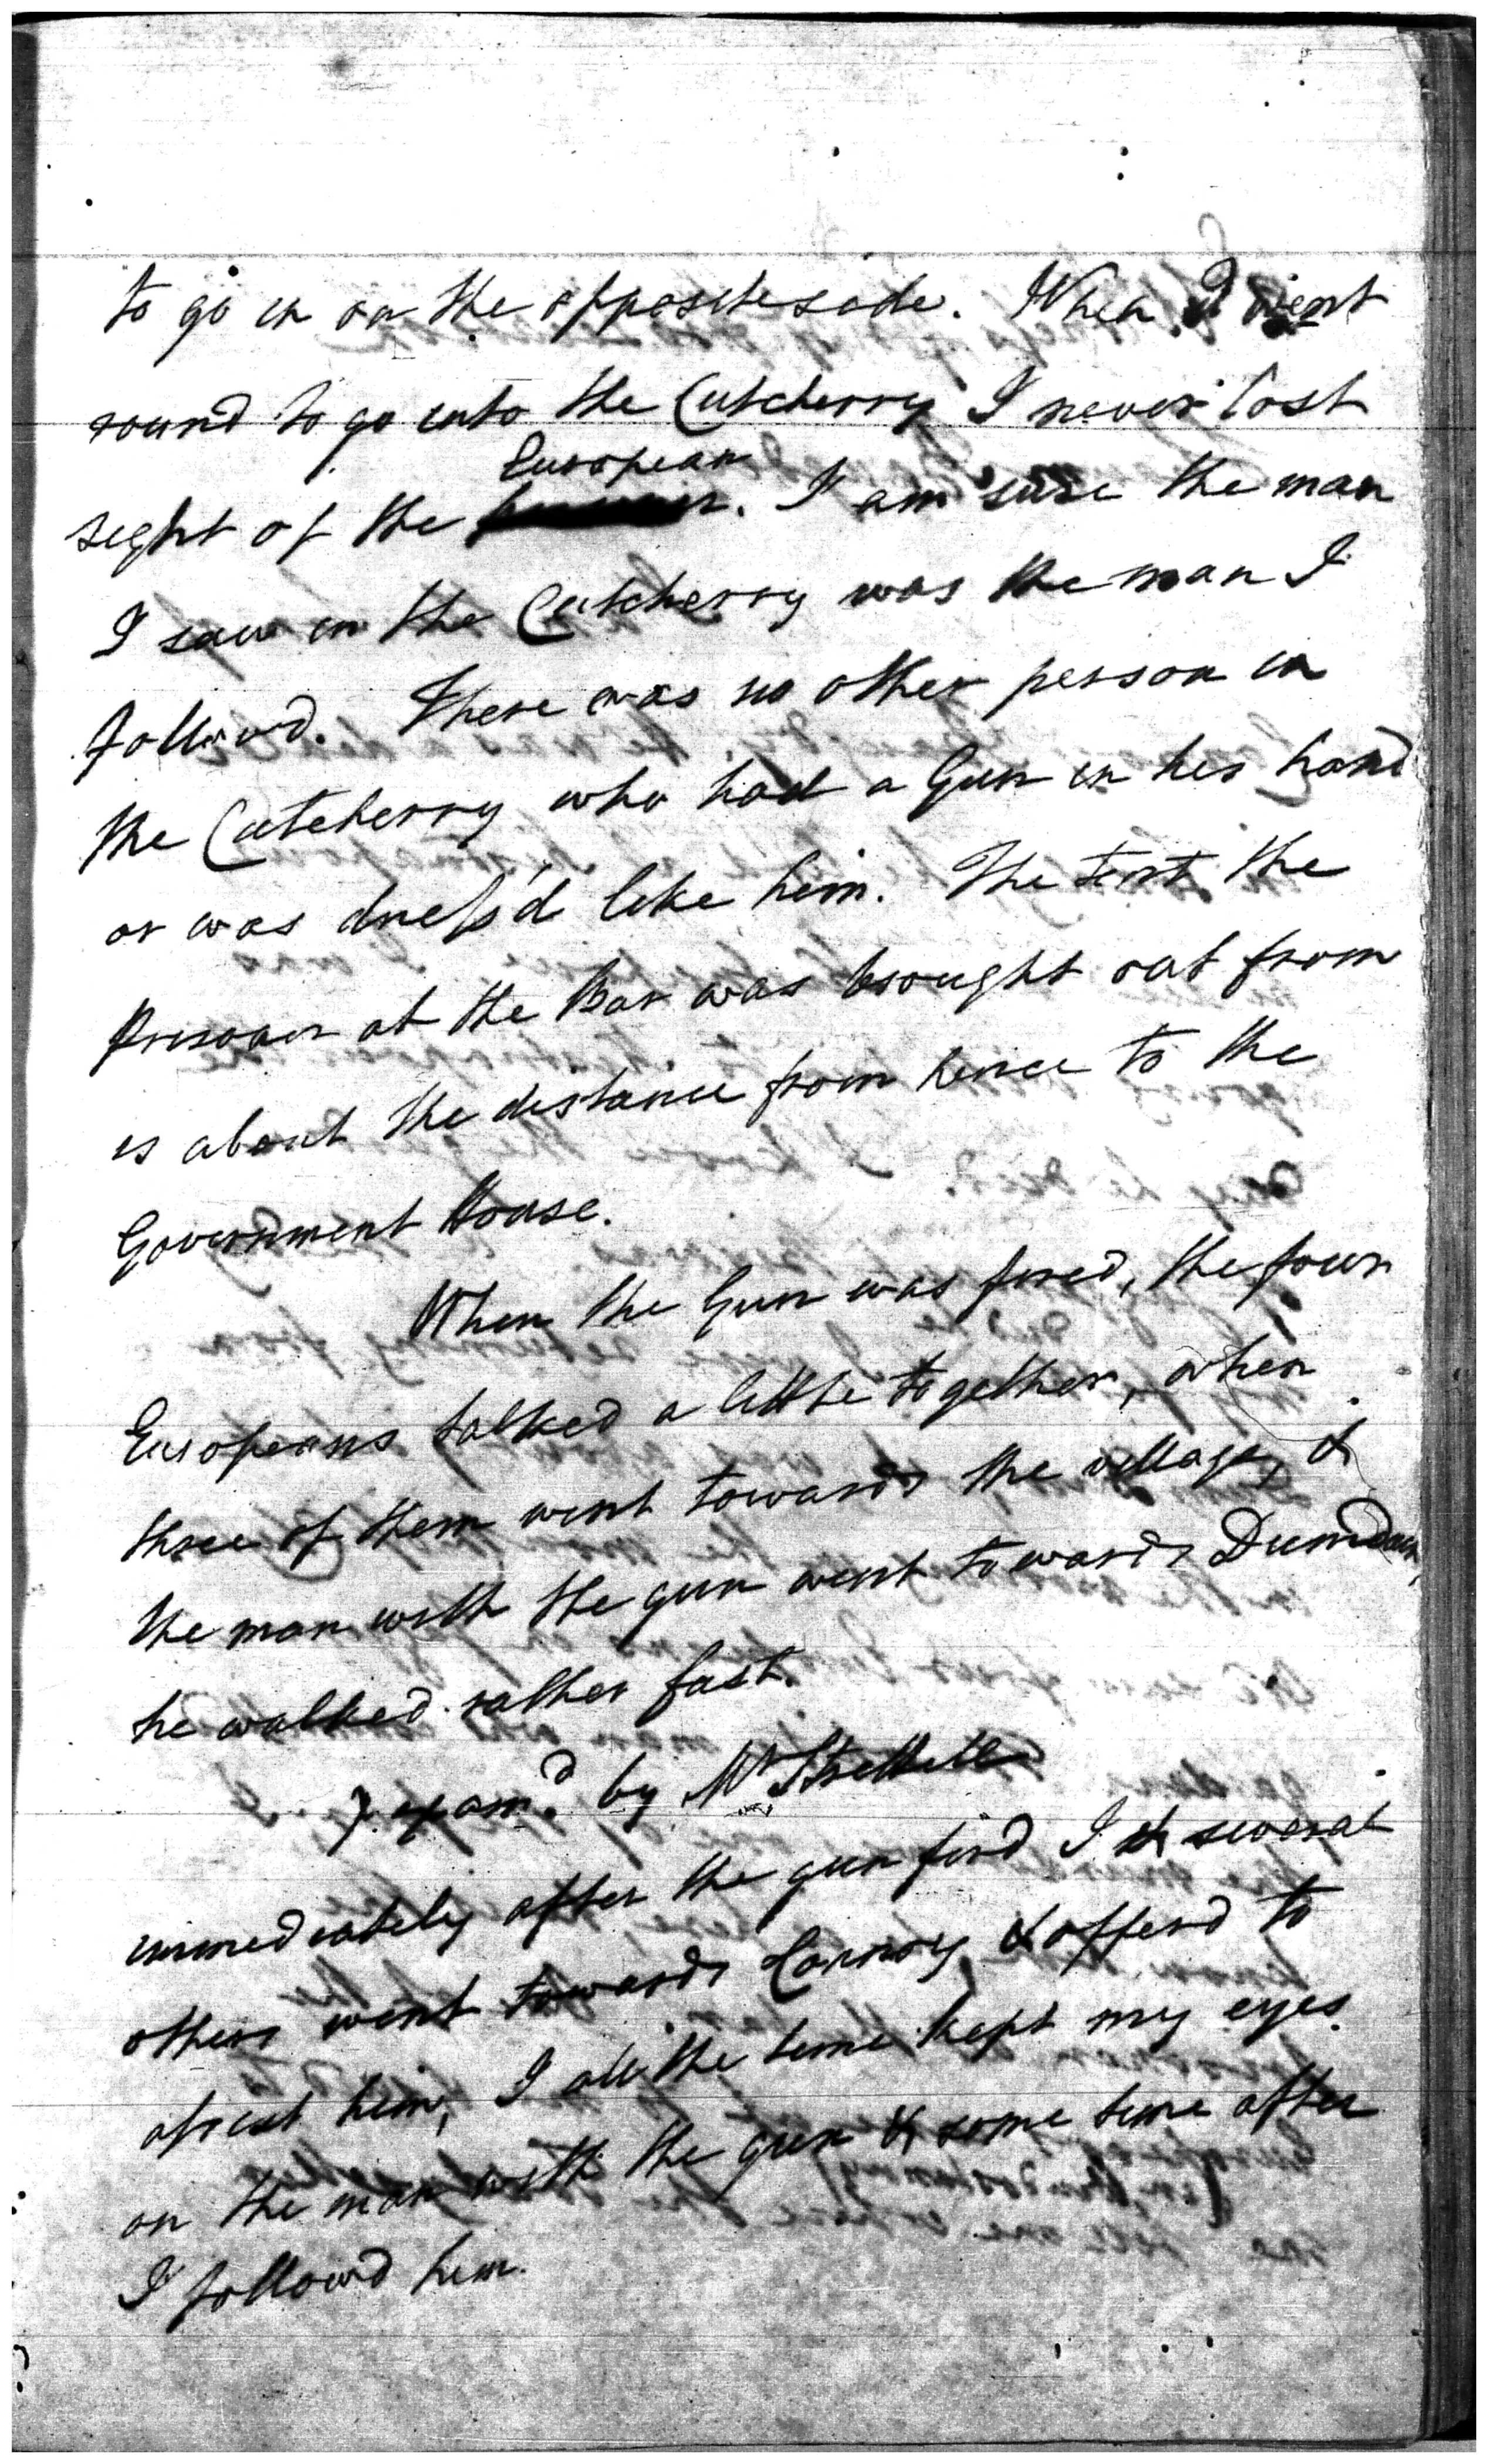 to go in on the opposite side. When I went
round to go into the Cutcherry I never lost
European
sight of the . I am sure the man
I saw in the Cutcherry was the man I
followd. There was no other person in
the Cutcherry who had a Gun in his hand
or was dress'd like him. The tent the
Prisoner at the Bar was brought out from
is about the distance from hence to the
Government House.
When the Gun was fired, the four
Europeans talked a little together, when
three of them went towards the village, &
the man with the gun went towards Dumdum,
he walked rather fast.
exam.d by Mr Strettell
immediately after the gun fird I & several
others went towards & offerd to
assist him, I all the time kept my eyes
on the man with the gun & some time after
I followd him.